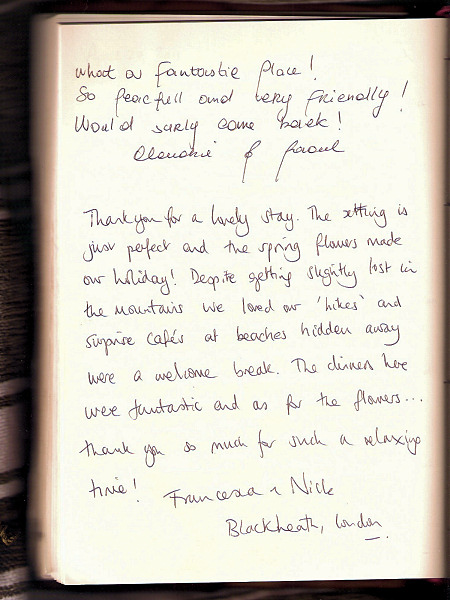 what a fantastic Place!
So peacfull and very friendly!
Would surly come back!
Claudie & Raoul
Thank you for a lovely stay. The setting is
just perfect and the spring flowers made
our holiday! Despite getting slightly lost in
the mountains we loved our 'hikes' and
surprise cafés at beaches hidden away
were a welcome break. The dinners here
were fantastic and as for the flowers...
thank you so much for such a relaxing
time! Francesca & Nick
Blackheath, London